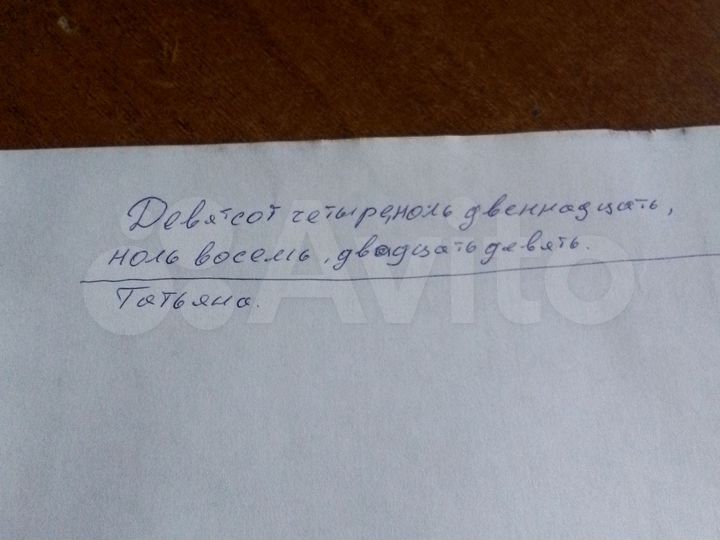 Девятсот четыре, ноль двеннадцать,
ноль восемь, двадцать девять.
Татьяна.
Avito